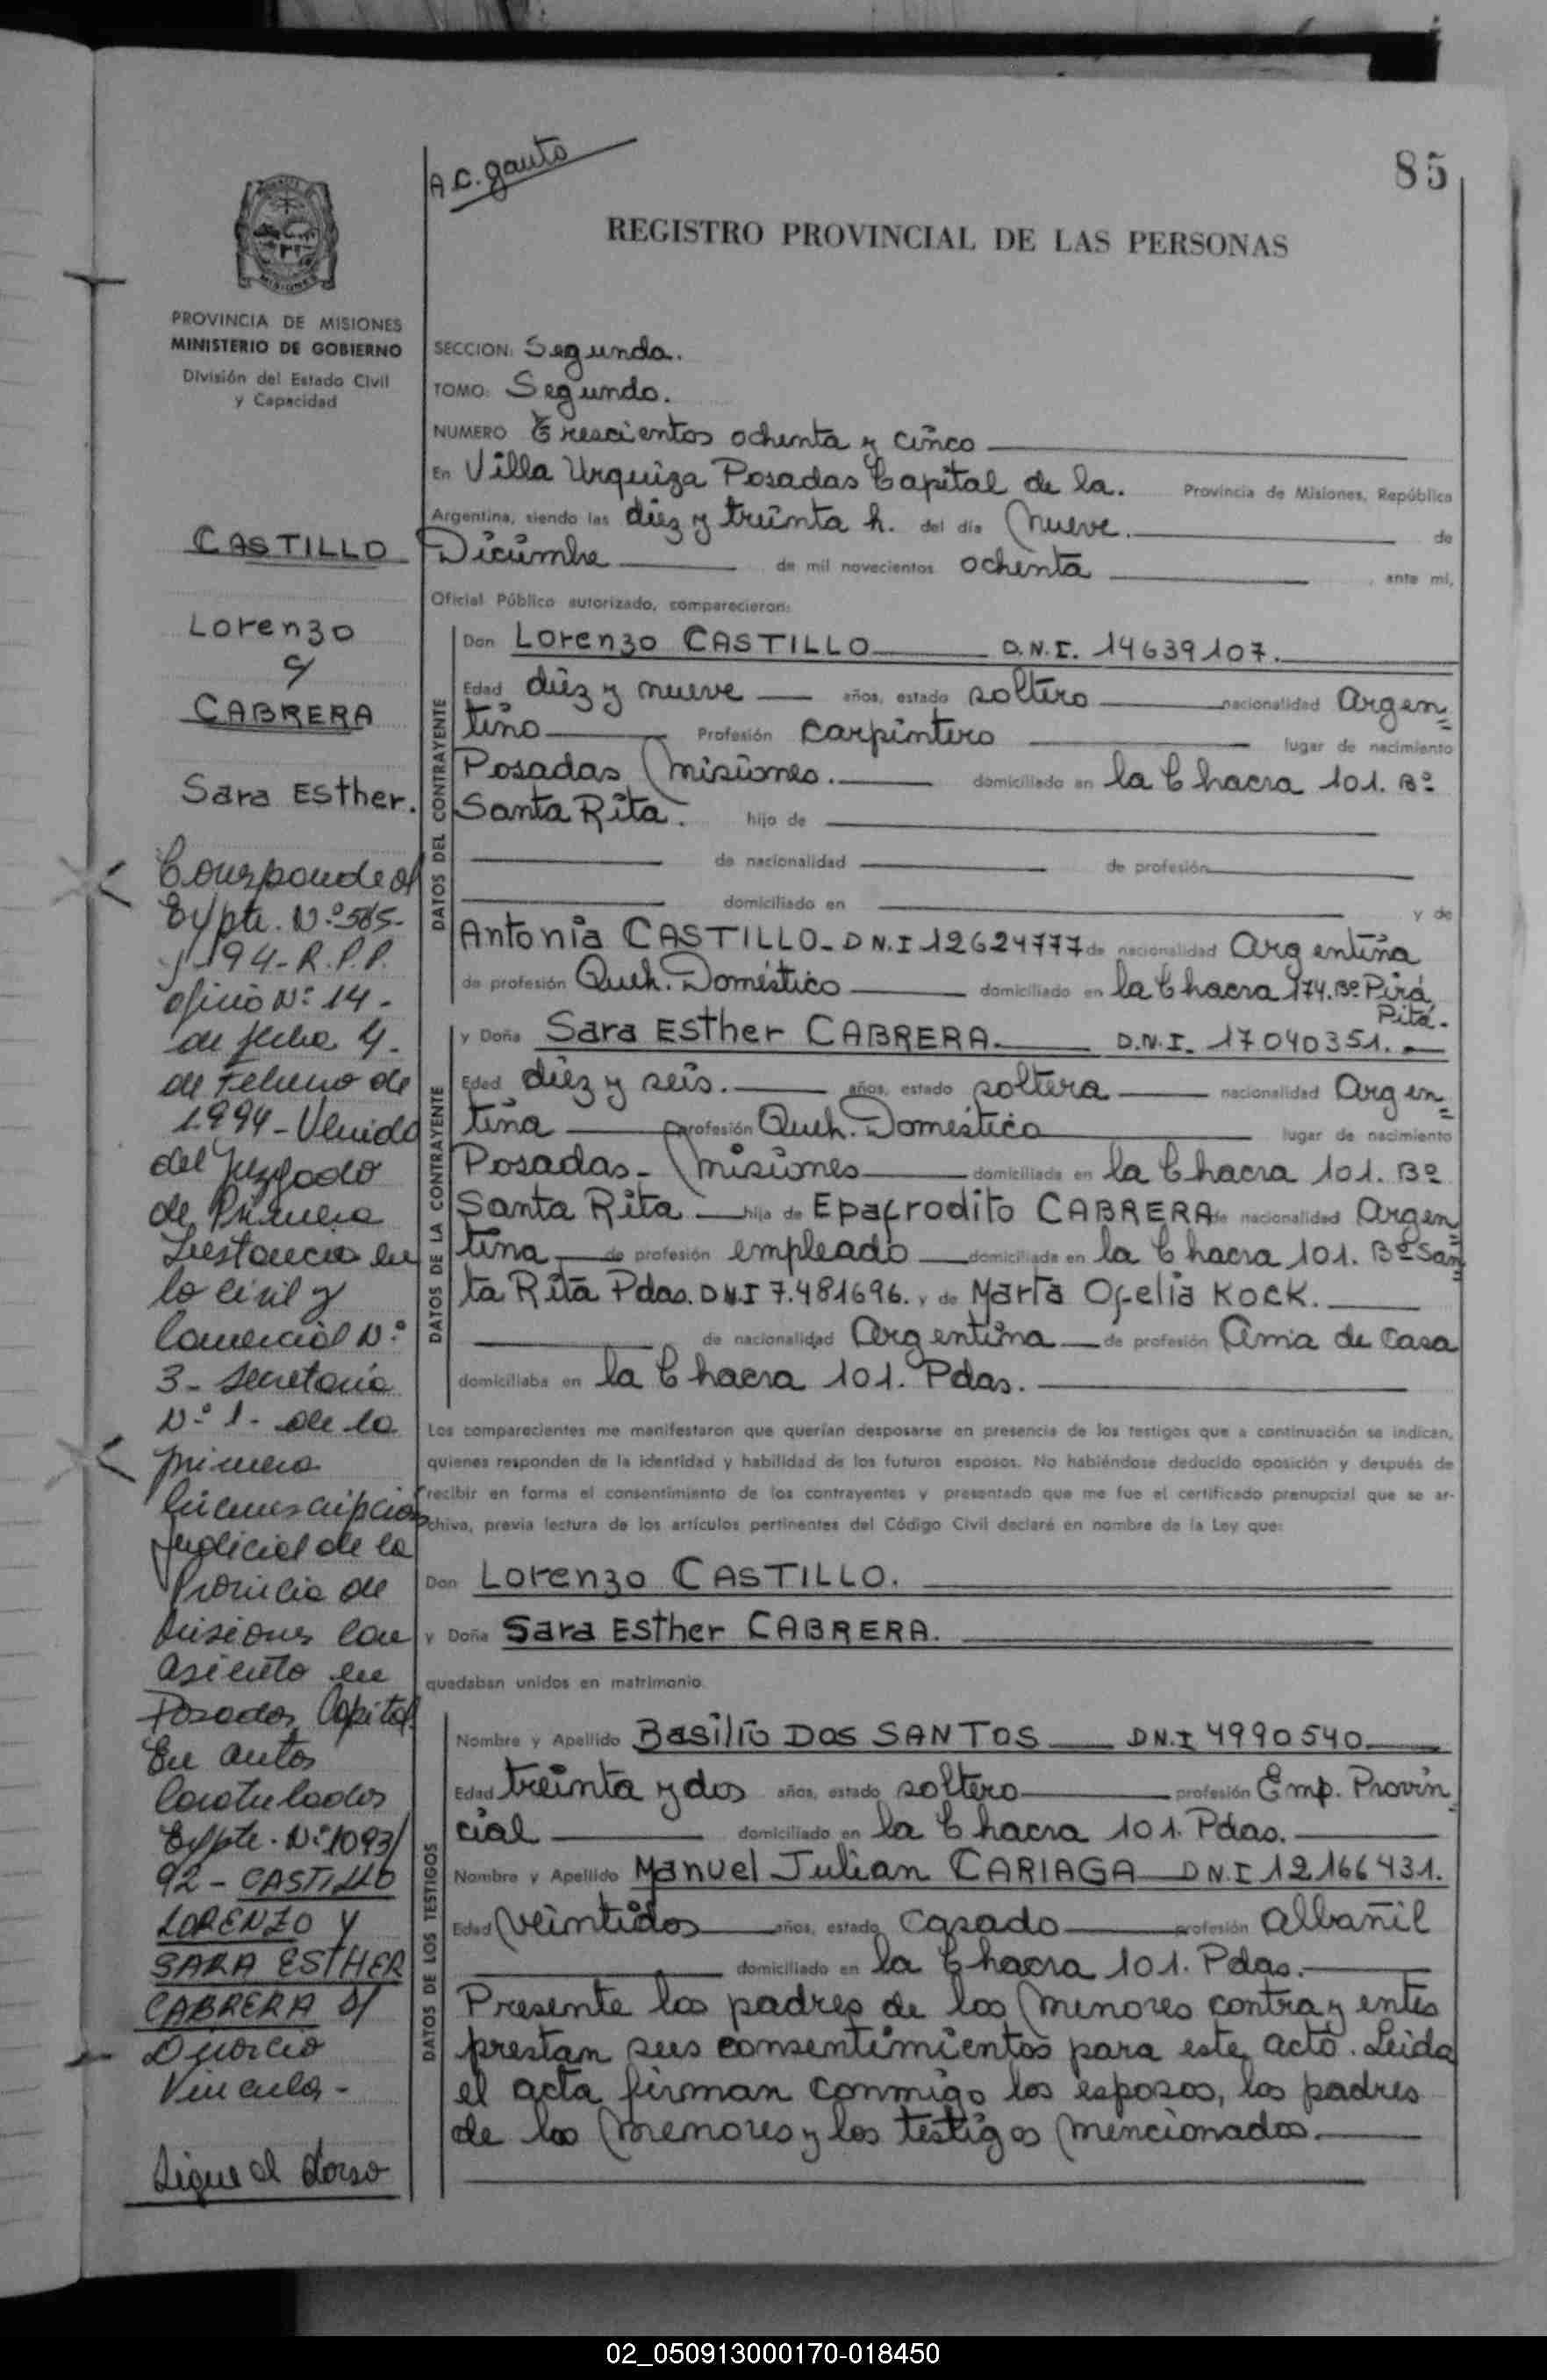 A.C. Gauto
85
REGISTRO PROVINCIAL DE LAS PERSONAS
MISIONES
PROVINCIA DE MISIONES
MINISTERIO DE GOBIERNO
División del Estado Civil
y Capacidad
CASTILLO
Lorenzo
y
CABRERA
Sara Esther.
Corresponde al
Expte. Nº 585-
94-R.P.P.
oficio Nº 14-
de fecha 4-
de Febrero de
1.994-Venido
del Juzgado
de Primera
Instancia en
lo Civil y
Comercial Nº
3- Secretaria
Nº 1- de la
primera
Circunscripcion
Judicial de la
Provincia de
Misiones con
asiento en
Posadas, Capital
En autos
Caratulados
Expte. Nº 1093/
92-CASTILLO
LORENZO Y
SARA ESTHER
CABRERA S/
Divorcio
Vincular-
Sigue al dorso
SECCION: Segunda.
TOMO: Segundo.
NUMERO Trescientos ochenta y cinco
En Villa Urquiza Posadas Capital de la. Provincia de Misiones, República
Argentina, siendo las diez y treinta h. del día nueve. de
Diciembre de mil novecientos ochenta , ante mí,
Oficial Público autorizado, comparecieron:
DATOS DEL CONTRAYENTE
Don Lorenzo CASTILLO D.N.I. 14639107.
Edad diez y nueve años, estado soltero nacionalidad Argen=
tino Profesión carpintero lugar de nacimiento
Posadas Misiones. domiciliado en la Chacra 101. Bº
Santa Rita. hijo de
de nacionalidad de profesión
domiciliado en y de
Antonia CASTILLO- DN.I 12624777 de nacionalidad Argentina
de profesión Queh. Doméstico domiciliado en la Chacra 174. Bº Pirá
Pitá.
DATOS DE LA CONTRAYENTE
y Doña Sara Esther CABRERA. D.N.I. 17040351.
Edad diez y seis. años, estado soltera nacionalidad Argen=
tina profesión Queh. Doméstica lugar de nacimiento
Posadas- Misiones domiciliada en la Chacra 101. Bº
Santa Rita hija de Epafrodito CABRERA de nacionalidad Argen
tina de profesión empleado domiciliado en la Chacra 101. Bº San=
ta Rita Pdas. DN.I 7.481696. y de Marta Ofelia KOCK.
de nacionalidad Argentina de profesión Ama de casa
domiciliaba en la Chacra 101. Pdas.
Los comparecientes me manifestaron que querían desposarse en presencia de los testigos que a continuación se indican,
quienes responden de la identidad y habilidad de los futuros esposos. No habiéndose deducido oposición y después de
recibir en forma el consentimiento de los contrayentes y presentado que me fue el certificado prenupcial que se ar-
chiva, previa lectura de los artículos pertinentes del Código Civil declaré en nombre de la Ley que:
Don Lorenzo CASTILLO.
y Doña Sara Esther CABRERA.
quedaban unidos en matrimonio.
DATOS DE LOS TESTIGOS
Nombre y Apellido Basilio DOS SANTOS DN.I 4990540
Edad treinta y dos años, estado soltero profesión Emp. Provin=
cial domiciliado en la Chacra 101. Pdas.
Nombre y Apellido Manuel Julian CARIAGA DN.I 12166431.
Edad veintidos años, estado casado profesión albañil
domiciliado en la Chacra 101. Pdas.
Presente los padres de los menores contrayentes
prestan sus consentimientos para este acto. Leida
el acta firman conmigo los esposos, los padres
de los menores y los testigos mencionados.
02_050913000170-018450